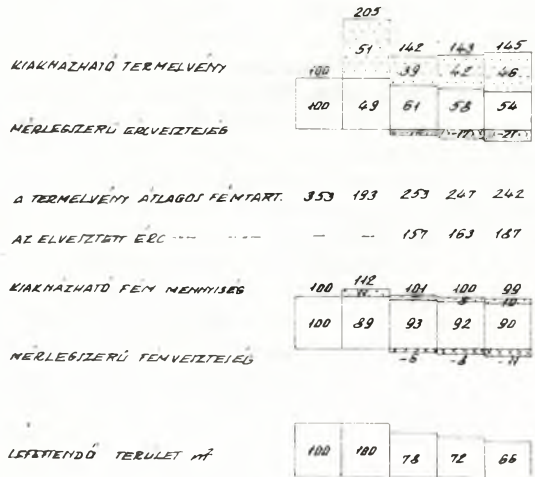 205
51 142 143 145
KIAKNÁZHATÓ TERMELVÉNY 100 39 42 46
100 49 61 58 54
MÉRLEGSZERŰ ÉRCVESZTESÉG -17 -21
A TERMELVÉNY ÁTLAGOS FÉMTART. 353 193 253 247 242
AZ ELVESZTETT ÉRC — — 157 163 187
KIAKNÁZHATÓ FÉM MENNYISÉG 100 112 101 100 99
11 8 10
100 89 93 92 90
MÉRLEGSZERŰ FÉMVESZTESÉG -6 -8 -11
LEFEJTENDŐ TERÜLET m² 100 100 78 72 66